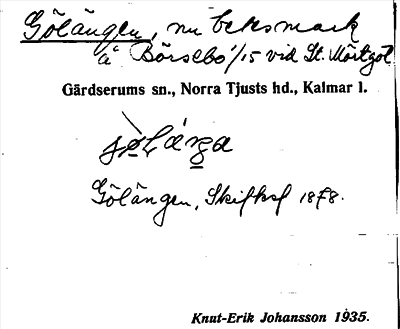 Gölängen, nu betesmark
å Börsebo 1/15 vid St. Mörtgöl
Gärdserums sn., Norra Tjusts hd., Kalmar l.
Gölängen, Skifksf 1878.
Knut-Erik Johansson 1935.